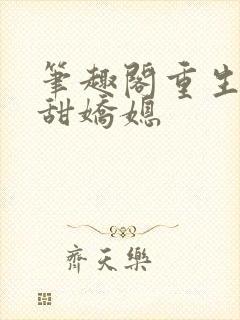 筆趣閣重生
甜嬌媳
齊天樂